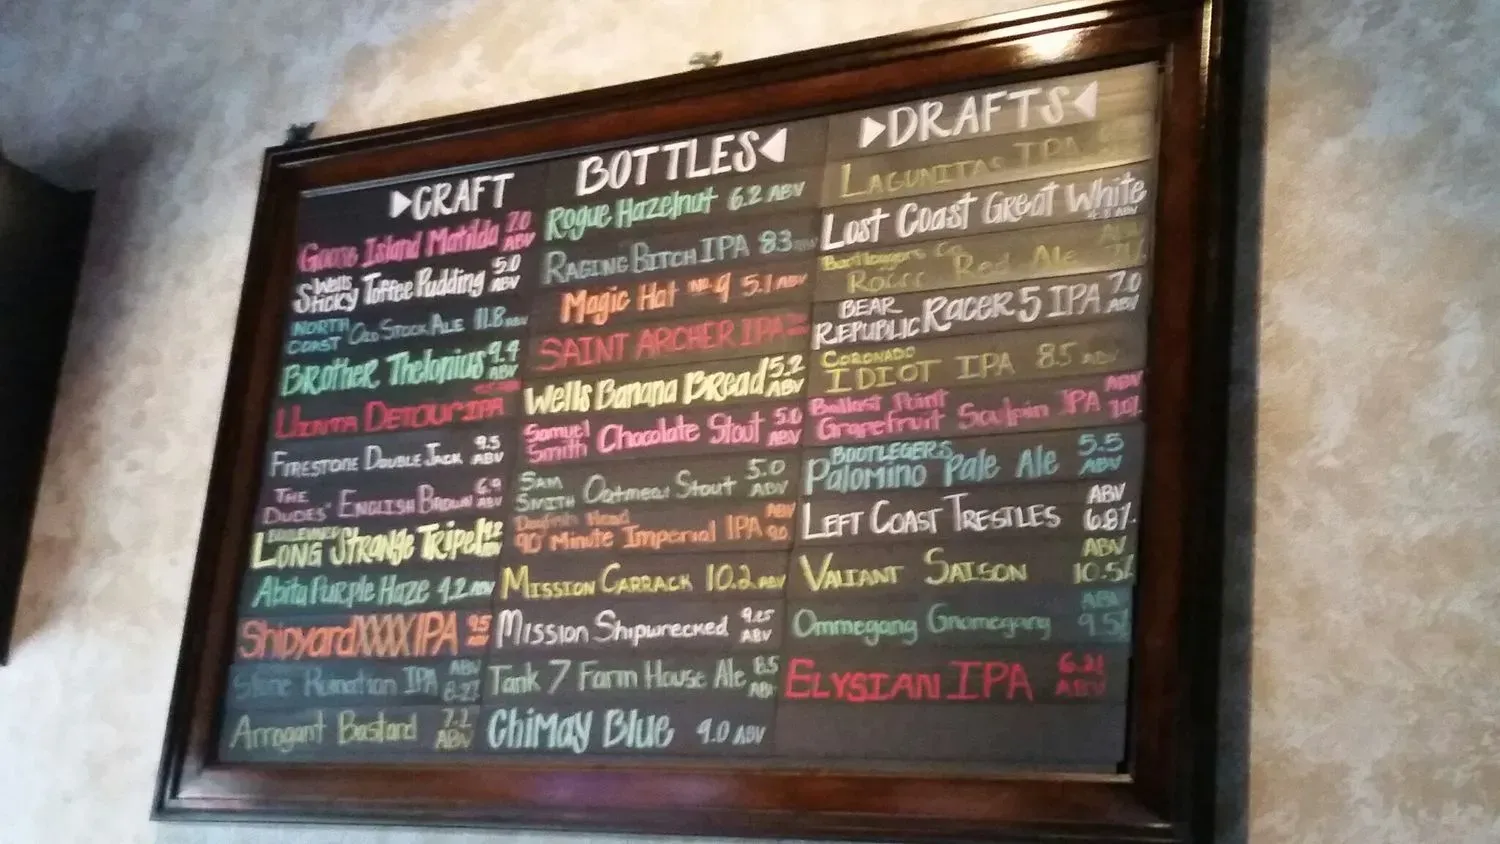 ▶CRAFT
Goose Island Matilda 7.0 ABV
Wells Sticky Toffee Pudding 5.0 ABV
NORTH COAST OLD STOCK ALE 11.8 ABV
Brother Thelonius 9.4 ABV
UINTA DETOUR IPA
FIRESTONE DOUBLE JACK 9.5 ABV
THE DUDES' ENGLISH BROWN 6.9 ABV
BOULEVARD LONG Strange Tripel 9.2 ABV
Abita Purple Haze 4.2 ABV
Shipyard XXXX IPA 9.5 ABV
Stone Ruination IPA ABV
Arrogant Bastard 7.2 ABV
BOTTLES◀
Rogue Hazelnut 6.2 ABV
RAGING BITCH IPA 8.3 ABV
Magic Hat no. 9 5.1 ABV
SAINT ARCHER IPA
Wells Banana Bread 5.2 ABV
Samuel Smith Chocolate Stout 5.0 ABV
SAM SMITH Oatmeal Stout 5.0 ABV
Dogfish Head 90 Minute Imperial IPA ABV 9.0
MISSION CARRACK 10.2 ABV
MISSION Shipwrecked 9.25 ABV
Tank 7 Farm House Ale 8.5 ABV
Chimay Blue 9.0 ABV
▶DRAFTS◀
LAGUNITAS IPA
Lost Coast Great White
Bootleggers Co. Red Ale
BEAR REPUBLIC RACER 5 IPA 7.0 ABV
CORONADO IDIOT IPA 8.5 ABV
Ballast Point Grapefruit Sculpin IPA ABV
BOOTLEGERS Palomino Pale Ale 5.5 ABV
LEFT COAST TRESTLES ABV 6.8%
VALIANT SAISON ABV 10.5%
Ommegang Gnomegang ABV 9.5%
ELYSIAN IPA ABV